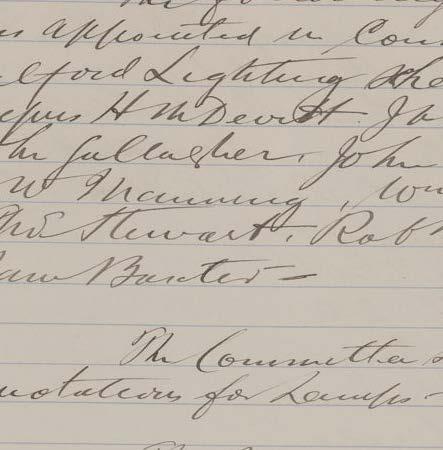 The
as appointed in Com
elford Lighting Sche
H McDevitt. Jn
Jn Gallagher, John
W Manning, Wm
Stewart, Rob
Baxter —
The Committee s
uotations for Lamps —